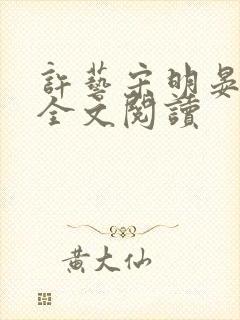 許藝宗明晏
全文閱讀
黃大仙